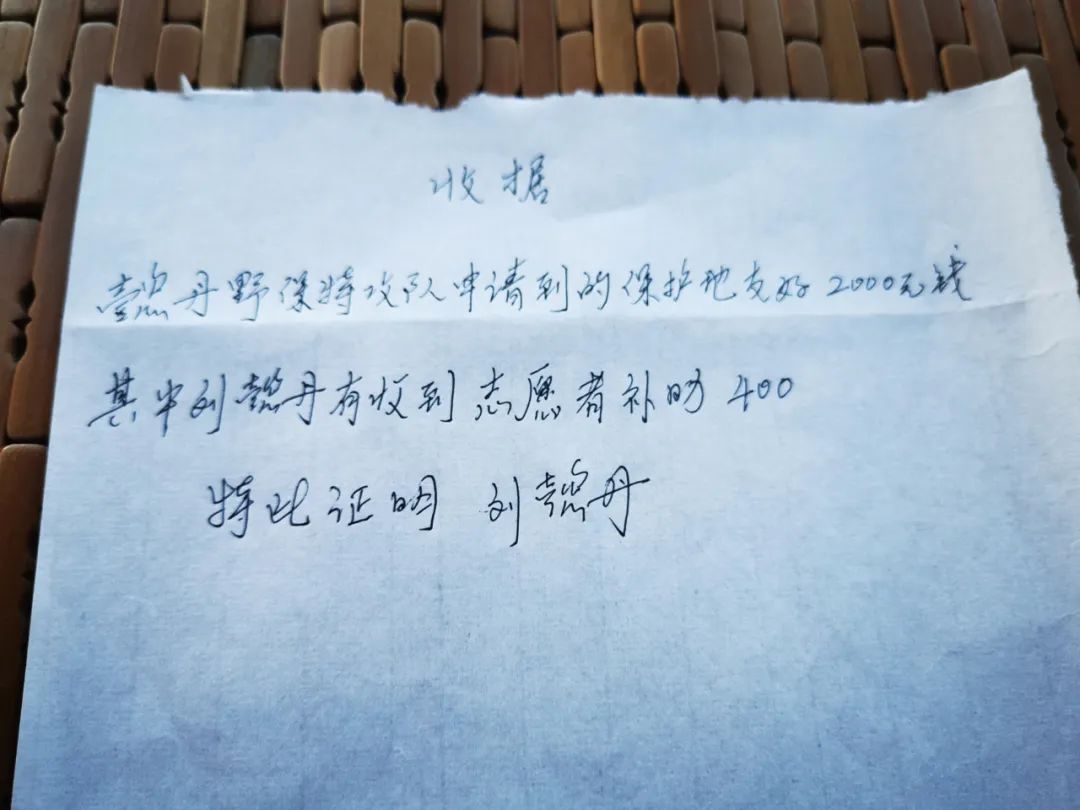 收据
懿丹野保特攻队申请到的保护地友好2000元钱
其中刘懿丹有收到志愿者补助400
特此证明 刘懿丹